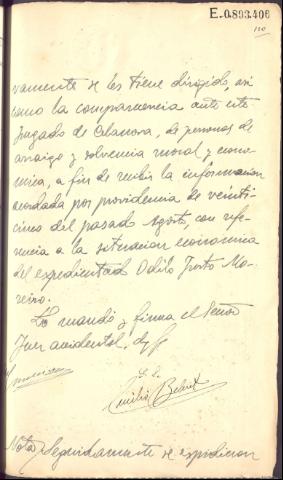 E.0.893.406
vamente se les tiene dirigido, asi
como la comparecencia ante este
Juzgado de Celanova, de personas de
arraigo y solvencia moral y econo-
mica, a fin de recibir la informacion
acordada por providencia de veinti-
cinco del pasado Agosto, con refe-
rencia a la situacion economica
del expedientado Odilo Justo Mo-
reiro.
Lo mando y firma el Señor
Juez accidental, doy fe
Emilio
Nota / Seguidamente se expidieron